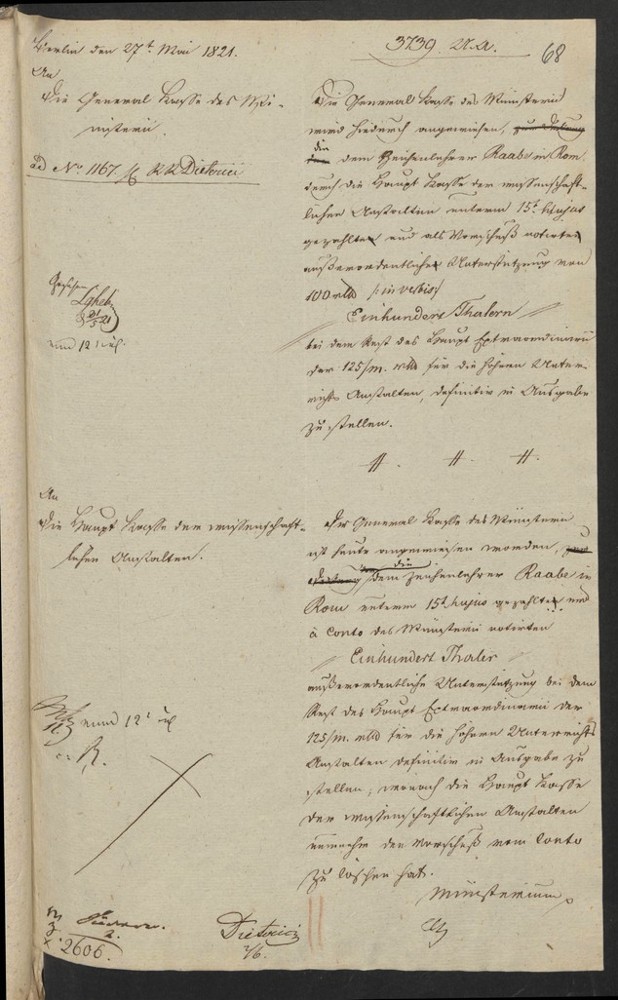 Berlin den 27t. Mai 1821.
3739. U.A.
68
An
die General Kasse des Mi-
nisterii.
ad No. 1167. RR Dieterici
Die General Kasse des Ministerii
wird hiedurch angewiesen,
die
dem Zeichenlehrer Raabe in Rom
durch die Haupt Kasse der wissenschaft-
lichen Anstalten unterm 15t. hujus
gezahlte und als Vorschuß notirte
außerordentliche Unterstützung von
100 rtlr
Einhundert Thalern
bei dem Rest des Haupt Extraordinarii
der 125/m. rtlr für die höheren Unter-
richts Anstalten, definitiv in Ausgabe
zu stellen.
An
die Haupt Kasse der wissenschaft-
lichen Anstalten.
Die General Kasse des Ministerii
ist heute angewiesen worden,
die
dem Zeichenlehrer Raabe in
Rom unterm 15t. hujus gezahlte und
à Conto des Ministerii notirten
Einhundert Thaler
außerordentliche Unterstützung bei dem
Rest des Haupt Extraordinarii der
125/m. rtlr für die höheren Unterrichts
Anstalten definitiv in Ausgabe zu
stellen; wonach die Haupt Kasse
der wissenschaftlichen Anstalten
nunmehr den Vorschuß vom Conto
zu löschen hat.
Ministerium
2606.
Dieterici